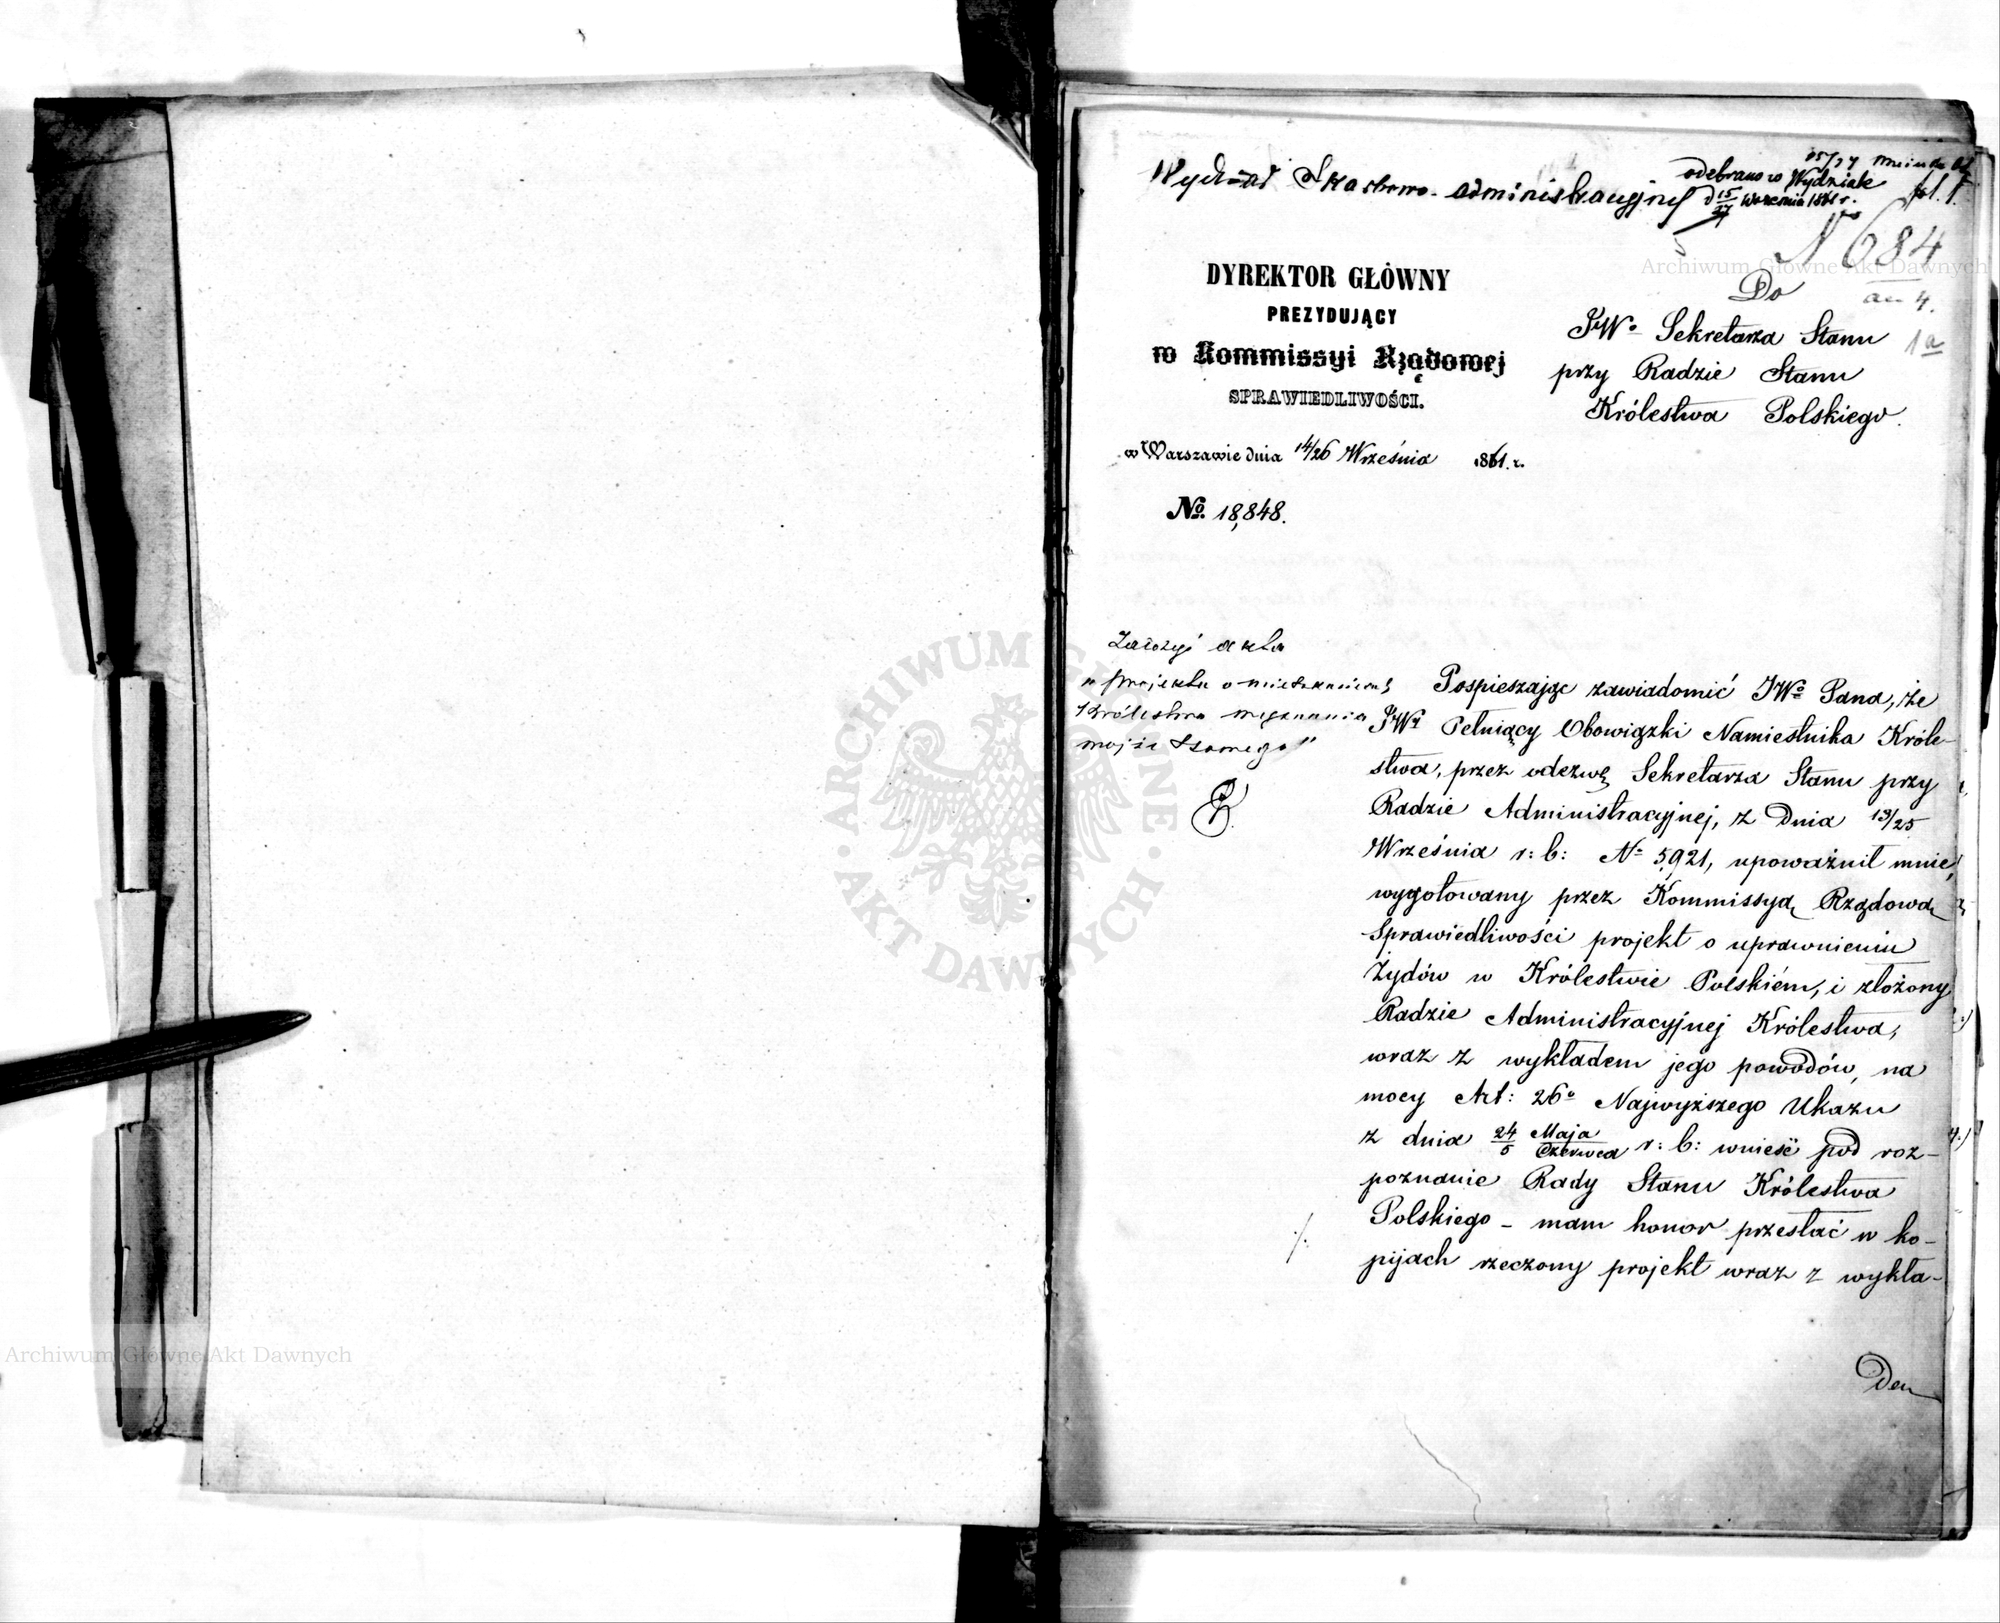 Wydział Skarbowo-administracyjny
odebrano w Wydziale
d 15/27 Września 1861 r.
15/27
N 684
DYREKTOR GŁÓWNY
PREZYDUJĄCY
w Kommissyi Rządowej
SPRAWIEDLIWOŚCI.
w Warszawie dnia 14/26 Września 1861. r.
No. 18,848.
Do
JWo Sekretarza Stanu
przy Radzie Stanu
Królestwa Polskiego.
4.
1a
Założyć akta
Królestwa wyznania
mojżeszowego"
Pospieszając zawiadomić JWo Pana, że
JWy Pełniący Obowiązki Namiestnika Króle-
stwa, przez odezwę Sekretarza Stanu przy
Radzie Administracyjnej, z Dnia 13/25
Września r: b: No 5,921, upoważnił mnie,
wygotowany przez Kommissyą Rządową
Sprawiedliwości projekt o uprawnieniu
Żydów w Królestwie Polskiém, i złożony
Radzie Administracyjnej Królestwa,
wraz z wykładem jego powodów, na
mocy Art: 26o Najwyższego Ukazu
z dnia 24/5 Maja/Czerwca r: b: wnieść pod roz-
poznanie Rady Stanu Królestwa
Polskiego – mam honor przesłać w ko-
pijach rzeczony projekt wraz z wykła-
dem
Archiwum Główne Akt Dawnych
ARCHIWUM GŁÓWNE AKT DAWNYCH
Archiwum Główne Akt Dawnych